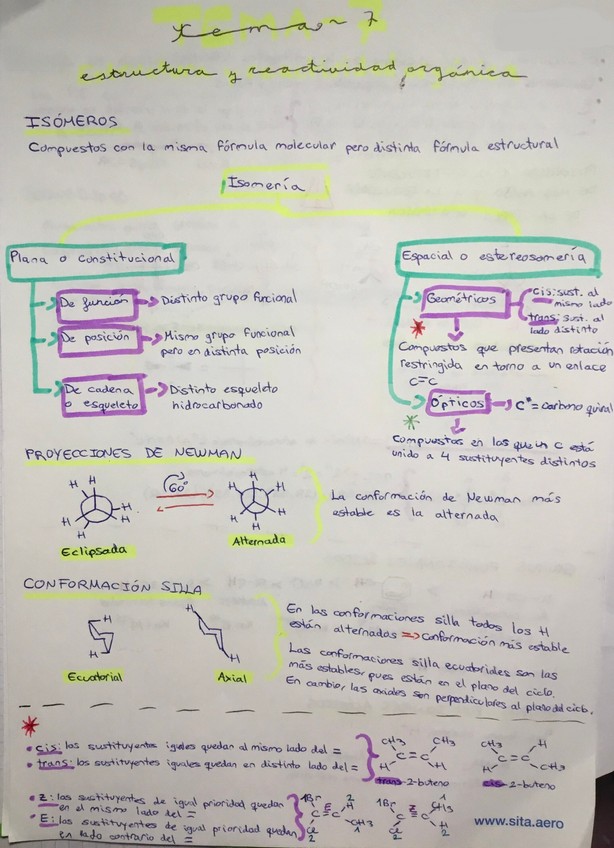 Tema 7
estructura y reactividad orgánica
ISÓMEROS
Compuestos con la misma fórmula molecular pero distinta fórmula estructural
Isomería
Plana o constitucional
De función
Distinto grupo funcional
De posición
Mismo grupo funcional
pero en distinta posición
De cadena
o esqueleto
Distinto esqueleto
hidrocarbonado
Espacial o estereosomería
Geométricos
cis: sust. al
mismo lado
trans: sust. al
lado distinto
Compuestos que presentan rotación
restringida en torno a un enlace
C=C
Ópticos
C* = carbono quiral
Compuestos en los que un C está
unido a 4 sustituyentes distintos
PROYECCIONES DE NEWMAN
H H H H H H
60°
H H H H H H
Eclipsada
Alternada
La conformación de Newman más
estable es la alternada
CONFORMACIÓN SILLA
H
H
Ecuatorial
H
H
Axial
En las conformaciones silla todos los H
están alternadas => conformación más estable
Las conformaciones silla ecuatoriales son las
más estables, pues están en el plano del ciclo.
En cambio, las axiales son perpendiculares al plano del ciclo.
cis: los sustituyentes iguales quedan al mismo lado del =
trans: los sustituyentes iguales quedan en distinto lado del =
CH3 CH3
C=C
H H
trans-2-buteno
CH3 H
C=C
H CH3
cis-2-buteno
Z: los sustituyentes de igual prioridad quedan
en el mismo lado del =
E: los sustituyentes de igual prioridad quedan
en lado contrario del =
1Br E H 2
C=C
Cl 2 CH3 1
1Br Z CH3 1
C=C
Cl 2 H 2
www.sita.aero